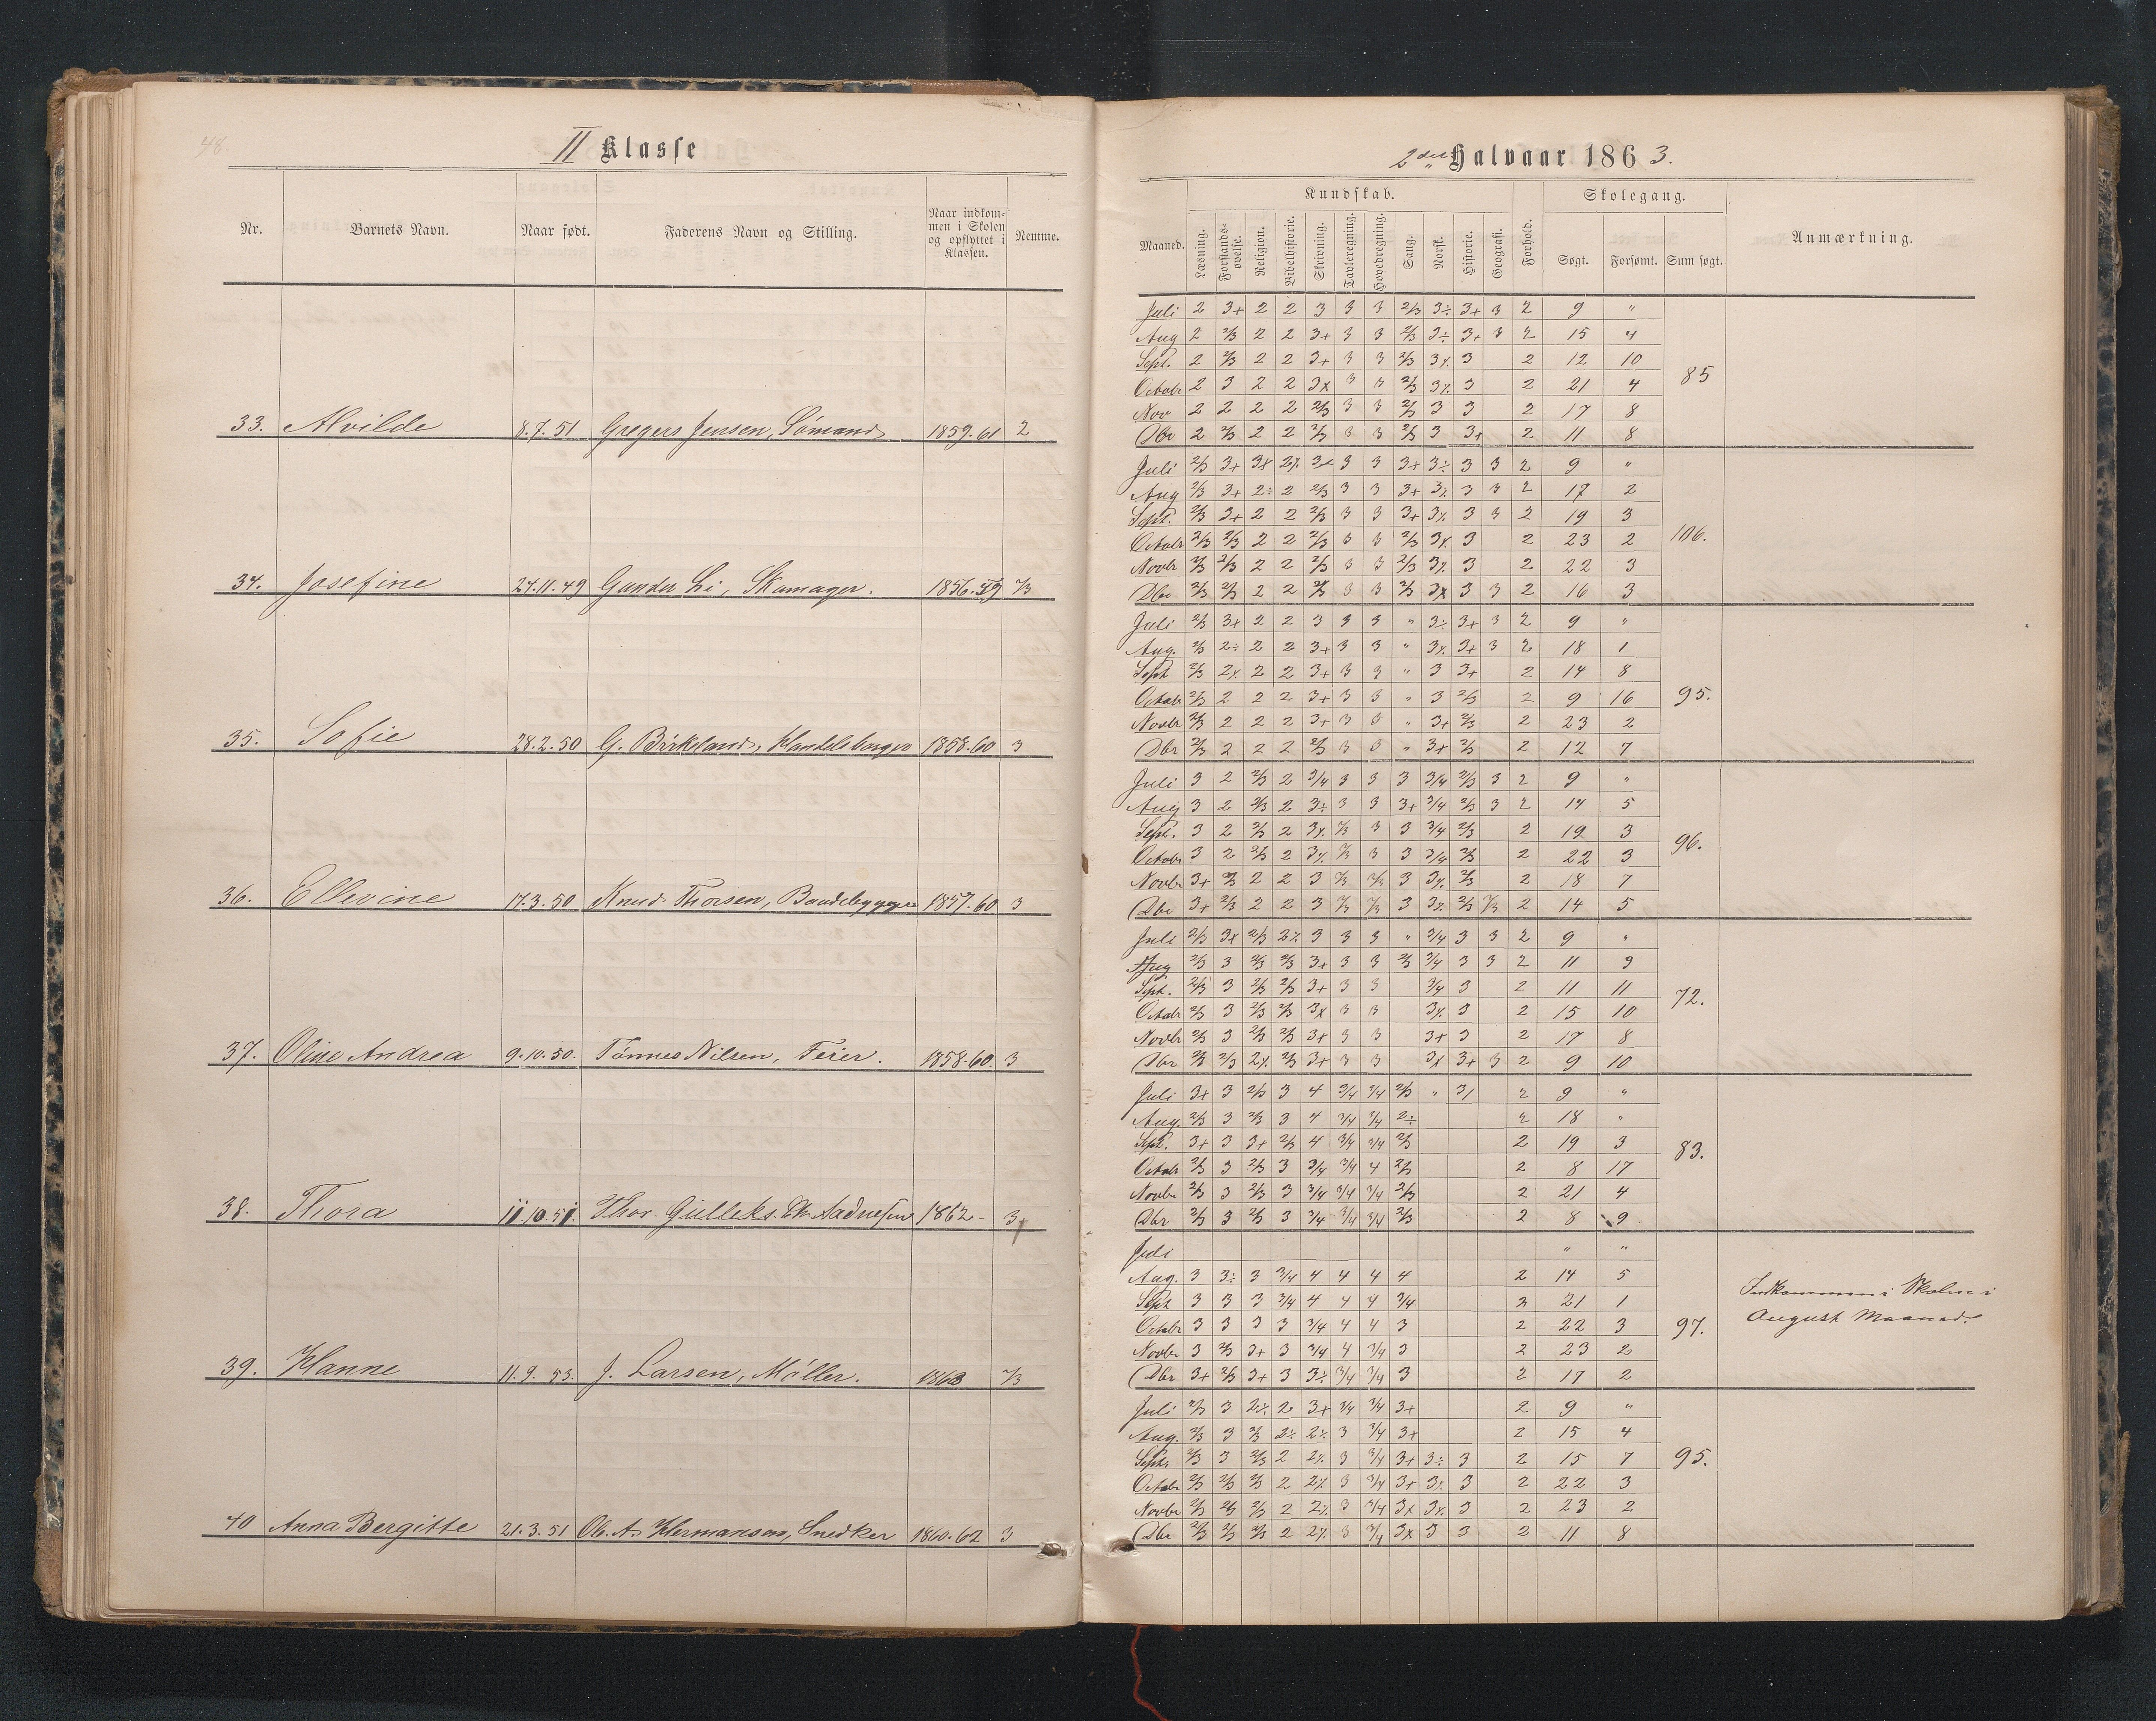 48
II Klasse
Nr.
Barnets Navn.
Naar født.
Faderens Navn og Stilling.
Naar indkom-
men i Skolen
og opflyttet i
Klassen.
Nemme.
33. Alvilde 8.7.51 Gregers Jensen, Sømand 1859.61 2
34. Josefine 24.11.49 Gunder Li, Skomager. 1856.59 2/3
35. Sofie 28.2.50 G. Birkeland, Handelsborger 1858.60 3
36. Ellevine 17.3.50 Knud Thorsen, Baadebygger 1857.60 3
37. Oline Andrea 9.10.50. Tønnes Nilsen, Feier. 1858.60. 3
38. Thora 11.10.51. Thor Gulleks. Aadnesen 1862- 3+
39. Hanne 11.9.53. J. Larsen, Møller. 1863 2/3
40 Anna Bergitte 21.3.51 Ol. A. Hermansen, Snedker 1860.62 3
2det Halvaar 1863.
Maaned.
Kundskab.
Læsning.
Forstands-
øvelse.
Religion.
Bibelhistorie.
Skrivning.
Tavleregning.
Hovedregning.
Sang.
Norsk.
Historie.
Geografi.
Forhold.
Skolegang.
Søgt.
Forsømt.
Sum søgt.
Anmærkning.
Juli 2 3+ 2 2 3 3 3 2/3 3÷ 3+ 3 2 9 "
Aug 2 2/3 2 2 3+ 3 3 2/3 3÷ 3+ 3 2 15 4
Sept. 2 2/3 2 2 3+ 3 3 2/3 3% 3 2 12 10
Octobr 2 3 2 2 3x 3 3 2/3 3% 3 2 21 4 85
Nov 2 2 2 2 2/3 3 3 2/3 3 3 2 17 8
Dbr 2 2/3 2 2 2/3 3 3 2/3 3 3+ 2 11 8
Juli 2/3 3+ 3x 2% 3x 3 3 3+ 3÷ 3 3 2 9 "
Aug 2/3 3+ 2÷ 2 2/3 3 3 3+ 3% 3 3 2 17 2
Sept. 2/3 3+ 2 2 2/3 3 3 3+ 3% 3 3 2 19 3
Octobr 2/3 2/3 2 2 2/3 3 3 2/3 3x 3 2 23 2 106.
Novbr 2/3 2/3 2 2 2/3 3 3 2/3 3% 3 2 22 3
Dbr 2/3 2/3 2 2 2/3 3 3 2/3 3x 3 3 2 16 3
Juli 2/3 3+ 2 2 3 3 3 " 3÷ 3+ 3 2 9 "
Aug. 2/3 2÷ 2 2 3+ 3 3 " 3% 3+ 3 2 18 1
Sept 2/3 2% 2 2 3+ 3 3 " 3 3+ 2 14 8
Octobr 2/3 2 2 2 3+ 3 3 " 3 2/3 2 9 16 95.
Novbr 2/3 2 2 2 3+ 3 3 " 3+ 2/3 2 23 2
Dbr 2/3 2 2 2 2/3 3 3 " 3+ 2/3 2 12 7
Juli 3 2 2/3 2 3/4 3 3 3 3/4 2/3 3 2 9 "
Aug 3 2 2/3 2 3÷ 3 3 3+ 3/4 2/3 3 2 14 5
Sept. 3 2 2/3 2 3% 2/3 3 3 3/4 2/3 2 19 3
Octobr 3 2 2/3 2 3% 2/3 3 3 3/4 2/3 2 22 3 96.
Novbr 3+ 2/3 2 2 3 2/3 2/3 3 3% 2/3 2 18 7
Dbr 3+ 2/3 2 2 3 2/3 2/3 3 3% 2/3 2/3 2 14 5
Juli 2/3 3x 2/3 2% 3 3 3 " 3/4 3 3 2 9 "
Aug 2/3 3 2/3 2/3 3+ 3 3 2/3 3/4 3 3 2 11 9
Sept. 2/3 3 2/3 2/3 3+ 3 3 3/4 3 2 11 11
Octobr 2/3 3 2/3 2/3 3x 3 3 3% 3 2 15 10 72.
Novbr 2/3 3 2/3 2/3 3+ 3 3 3+ 3 2 17 8
Dbr 2/3 2/3 2% 2/3 3+ 3 3 3x 3+ 3 2 9 10
Juli 3+ 3 2/3 3 4 3/4 3/4 2/3 " 3/ 2 9 "
Aug. 2/3 3 2/3 3 4 3/4 3/4 2÷ 2 18 "
Sept. 3+ 3 3+ 2/3 4 3/4 3/4 2/3 2 19 3
Octobr 2/3 3 2/3 3 3/4 3/4 4 2/3 2 8 17 83.
Novbr 2/3 3 2/3 3 3/4 3/4 3/4 2/3 2 21 4
Dbr 2/3 3 2/3 3 3/4 3/4 3/4 2/3 2 8 9
Juli " "
Aug. 3 3÷ 3 3/4 4 4 4 4 2 14 5
Sept 3 3 3 3/4 4 4 4 3/4 2 21 1
Octobr 3 3 3 3 3/4 4 4 3 2 22 3 97.
Novbr 3 2/3 3+ 3 3/4 4 3/4 3 2 23 2
Dbr 3+ 2/3 3+ 3 3÷ 3/4 3/4 3 2 17 2
Indkommen i Skolen i
August Maaned.
Juli 2/3 3 2% 2 3+ 3/4 3/4 3+ 2 9 "
Aug. 2/3 3 2/3 2÷ 2% 3 3/4 3+ 2 15 4
Septr. 2/3 3 2/3 2 2% 3 3/4 3+ 3÷ 3 2 15 7 95.
Octobr 2/3 2/3 2/3 2 2% 3 3/4 3+ 3% 3 2 22 3
Novbr 2/3 2/3 2/3 2 2% 3 3/4 3x 3% 3 2 23 2
Dbr 2/3 2/3 2/3 2 2% 3 3/4 3x 3 3 2 11 8